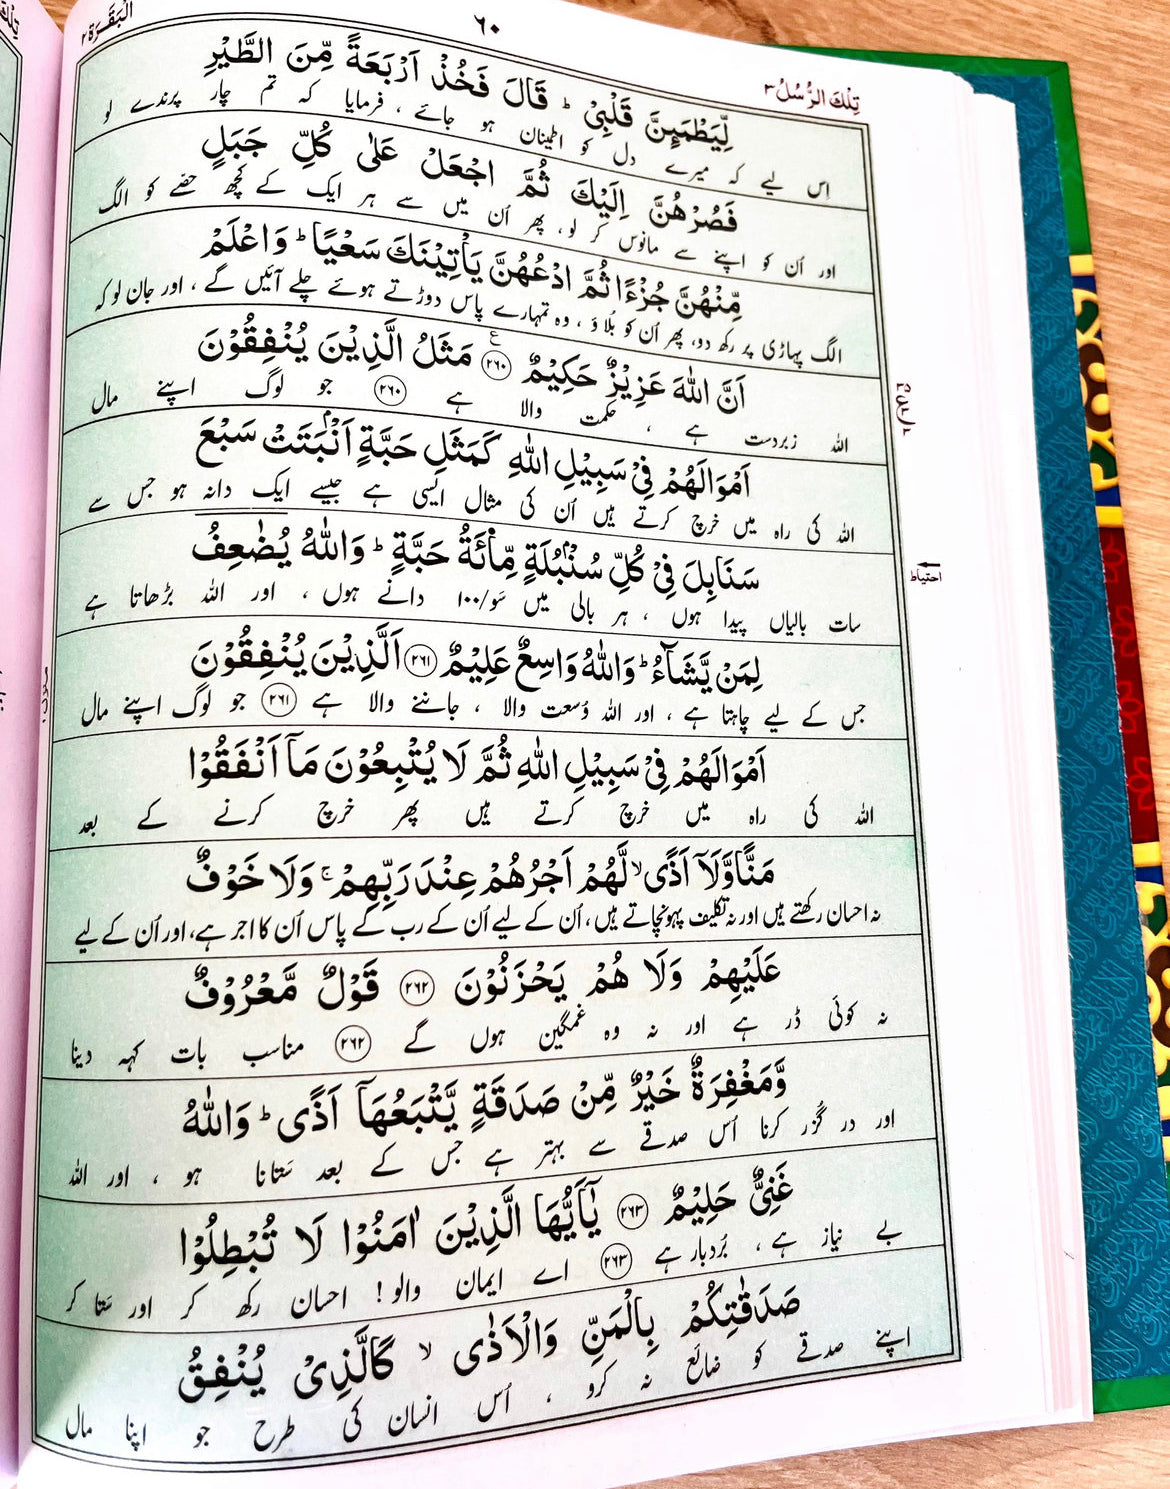 اَلْبَقَرَة ٢
٦٠
تِلْكَ الرُّسُلُ ٣
لِّيَطْمَىِٕنَّ قَلْبِیْ ؕ قَالَ فَخُذْ اَرْبَعَةً مِّنَ الطَّيْرِ
اِس لیے کہ میرے دل کو اطمینان ہو جائے ، فرمایا کہ تم چار پرندے لو
فَصُرْهُنَّ اِلَيْكَ ثُمَّ اجْعَلْ عَلٰى كُلِّ جَبَلٍ
اور اُن کو اپنے سے مانوس کر لو، پھر اُن میں سے ہر ایک کے کچھ حصّے کو الگ
مِّنْهُنَّ جُزْءًا ثُمَّ ادْعُهُنَّ يَاْتِيْنَكَ سَعْيًا ؕ وَاعْلَمْ
الگ پہاڑی پر رکھ دو، پھر اُن کو بُلاؤ ، وہ تمہارے پاس دوڑتے ہوئے چلے آئیں گے ، اور جان لو کہ
اَنَّ اللّٰهَ عَزِيْزٌ حَكِيْمٌ ﴿٢٦٠﴾ ع مَثَلُ الَّذِيْنَ يُنْفِقُوْنَ
اللہ زبردست ہے ، حکمت والا ہے ﴿٢٦٠﴾ جو لوگ اپنے مال
اَمْوَالَهُمْ فِیْ سَبِيْلِ اللّٰهِ كَمَثَلِ حَبَّةٍ اَنْۢبَتَتْ سَبْعَ
اللہ کی راہ میں خرچ کرتے ہیں اُن کی مثال ایسی ہے جیسے ایک دانہ ہو جس سے
سَنَابِلَ فِیْ كُلِّ سُنْۢبُلَةٍ مِّائَةُ حَبَّةٍ ؕ وَاللّٰهُ يُضٰعِفُ
احتیاط
سات بالیاں پیدا ہوں ، ہر بالی میں سَو/١٠٠ دانے ہوں ، اور اللہ بڑھاتا ہے
لِمَنْ يَّشَآءُ ؕ وَاللّٰهُ وَاسِعٌ عَلِيْمٌ ﴿٢٦١﴾ اَلَّذِيْنَ يُنْفِقُوْنَ
جس کے لیے چاہتا ہے ، اور اللہ وُسعت والا ، جاننے والا ہے ﴿٢٦١﴾ جو لوگ اپنے مال
اَمْوَالَهُمْ فِیْ سَبِيْلِ اللّٰهِ ثُمَّ لَا يُتْبِعُوْنَ مَآ اَنْفَقُوْا
اللہ کی راہ میں خرچ کرتے ہیں پھر خرچ کرنے کے بعد
مَنًّا وَّلَآ اَذًى ۙ لَّهُمْ اَجْرُهُمْ عِنْدَ رَبِّهِمْ ۚ وَلَا خَوْفٌ
نہ احسان رکھتے ہیں اور نہ تکلیف پہونچاتے ہیں، اُن کے لیے اُن کے رب کے پاس اُن کا اجر ہے، اور اُن کے لیے
عَلَيْهِمْ وَلَا هُمْ يَحْزَنُوْنَ ﴿٢٦٢﴾ قَوْلٌ مَّعْرُوْفٌ
نہ کوئی ڈر ہے اور نہ وہ غمگین ہوں گے ﴿٢٦٢﴾ مناسب بات کہہ دینا
وَّمَغْفِرَةٌ خَيْرٌ مِّنْ صَدَقَةٍ يَّتْبَعُهَآ اَذًى ؕ وَاللّٰهُ
اور در گُزر کرنا اُس صدقے سے بہتر ہے جس کے بعد سَتانا ہو ، اور اللہ
غَنِیٌّ حَلِيْمٌ ﴿٢٦٣﴾ يٰٓاَيُّهَا الَّذِيْنَ اٰمَنُوْا لَا تُبْطِلُوْا
بے نیاز ہے ، بُردبار ہے ﴿٢٦٣﴾ اے ایمان والو! احسان رکھ کر اور سَتا کر
صَدَقٰتِكُمْ بِالْمَنِّ وَالْاَذٰى ۙ كَالَّذِیْ يُنْفِقُ
اپنے صدقے کو ضائع نہ کرو ، اُس انسان کی طرح جو اپنا مال